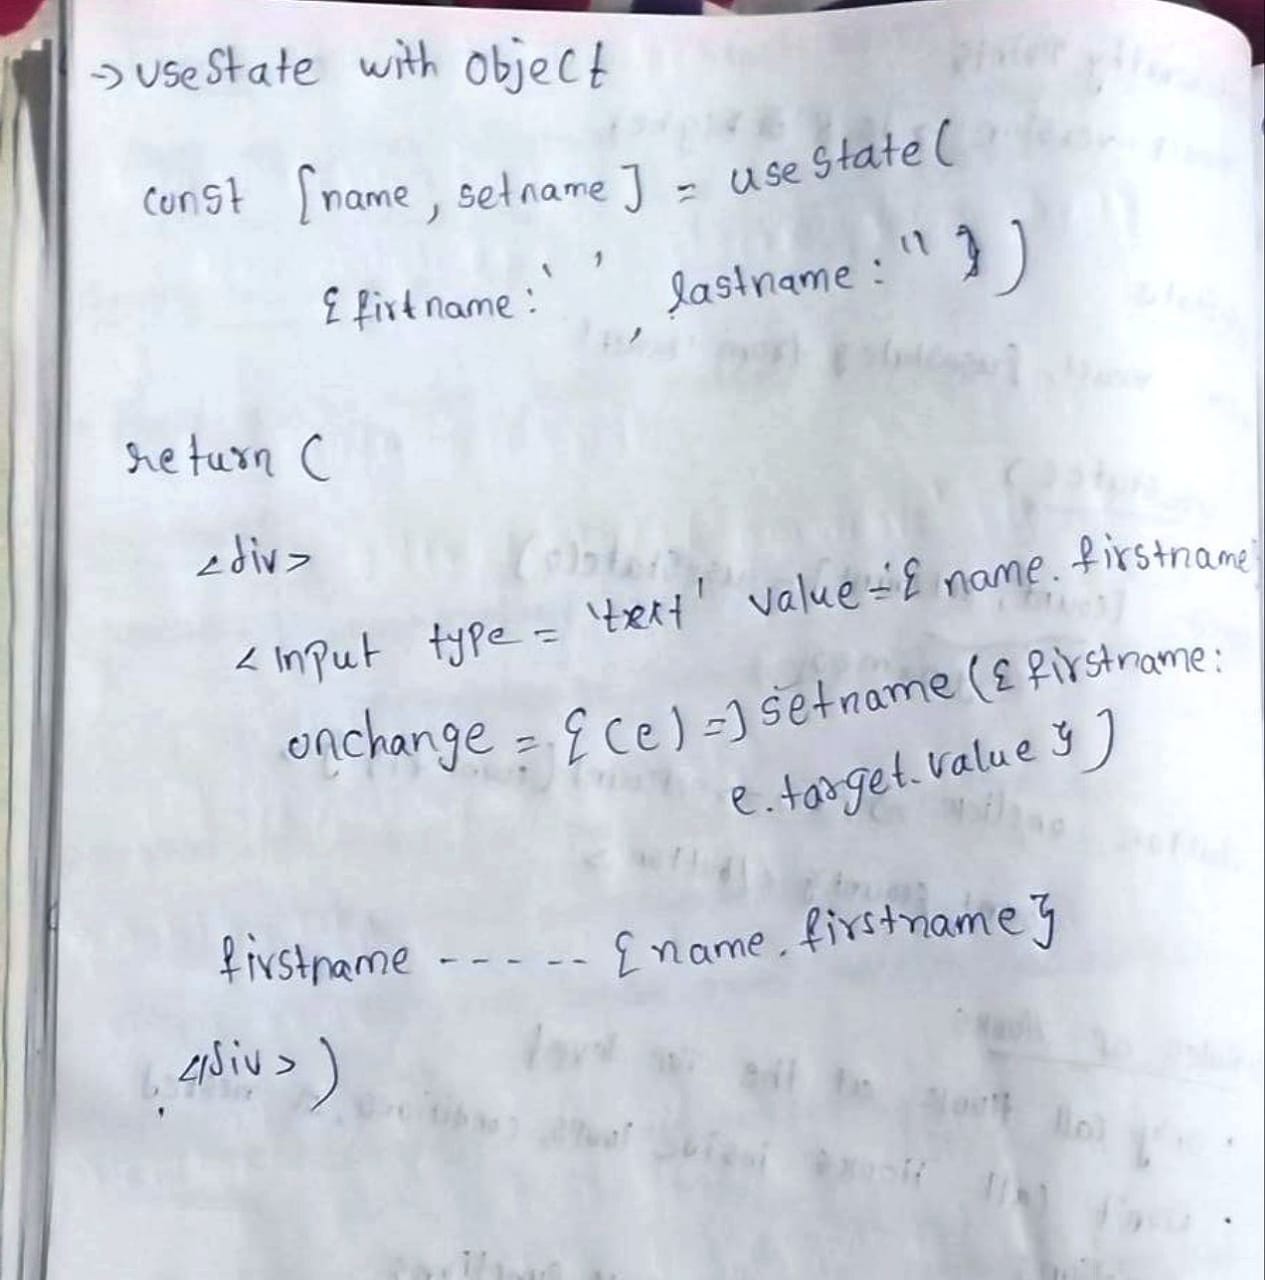 → useState with object
const [name, setname] = useState(
{ firtname: ' ', lastname: '' })
return (
<div>
<input type = 'text' value = { name. firstname}
onchange = {(e) => setname ({ firstname:
e.target.value })
firstname ------ { name. firstname }
</div> )